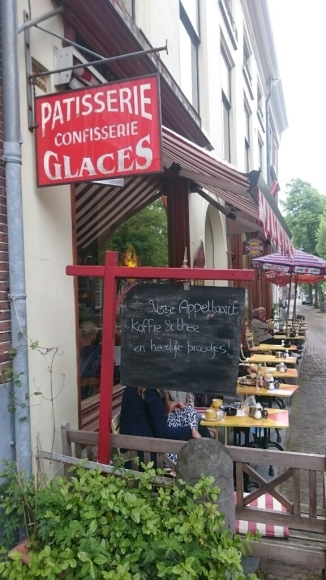 PATISSERIE
CONFISSERIE
GLACES
Verse Appeltaart
koffie & thee
en heerlijke broodjes!